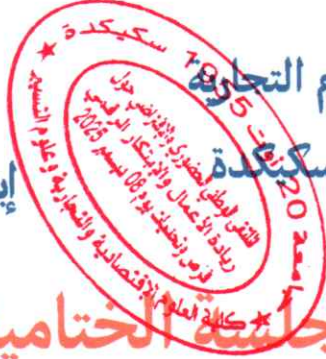 م التجارية
سكيكدة
إي
جامعة 20 أوت 1955 سكيكدة
كلية العلوم الاقتصادية والتجارية وعلوم التسيير
الملتقى الوطني الحضوري والافتراضي حول
ريادة الأعمال والابتكار الرقمي
فرص وتحديات يوم 08 ديسمبر 2025
جلسة الختامي